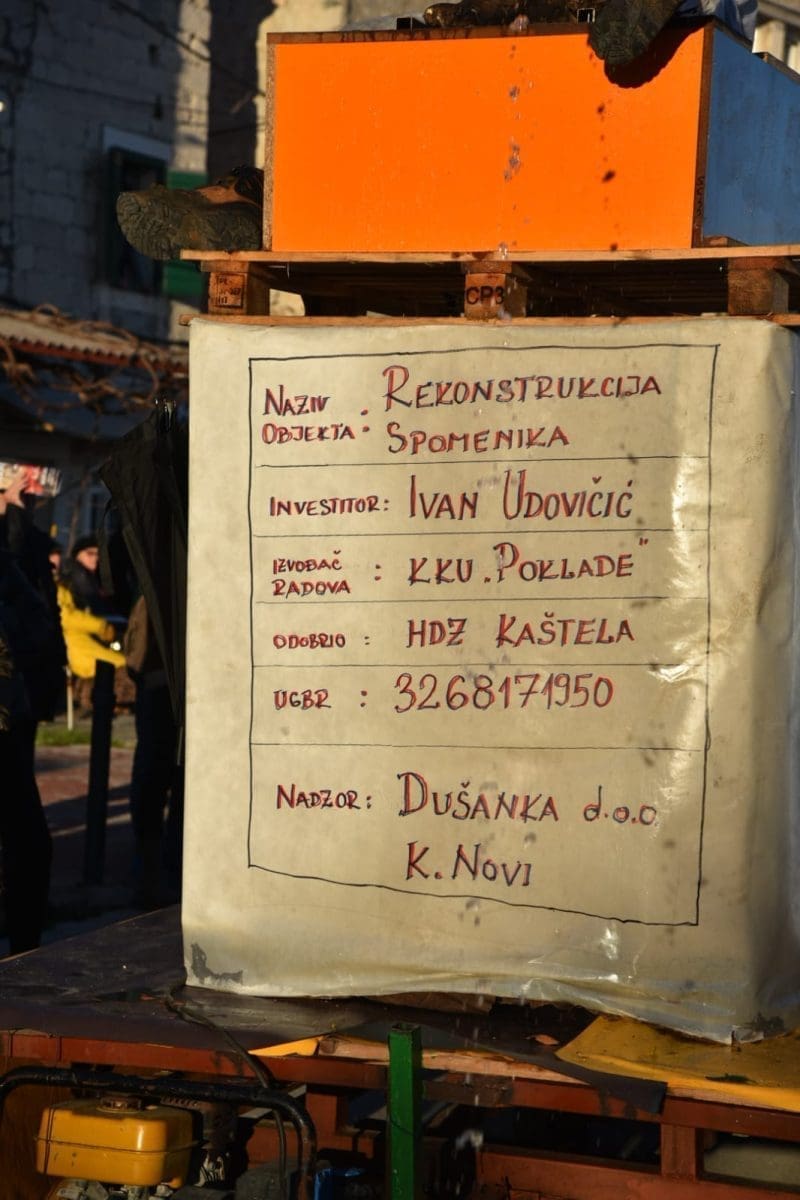 CP3
NAZIV : REKONSTRUKCIJA
OBJEKTA SPOMENIKA
INVESTITOR: IVAN UDOVIČIĆ
IZVOĐAČ : KKU „POKLADE"
RADOVA
ODOBRIO : HDZ KAŠTELA
UGBR : 3268171950
NADZOR: DUŠANKA d.o.o.
K. NOVI